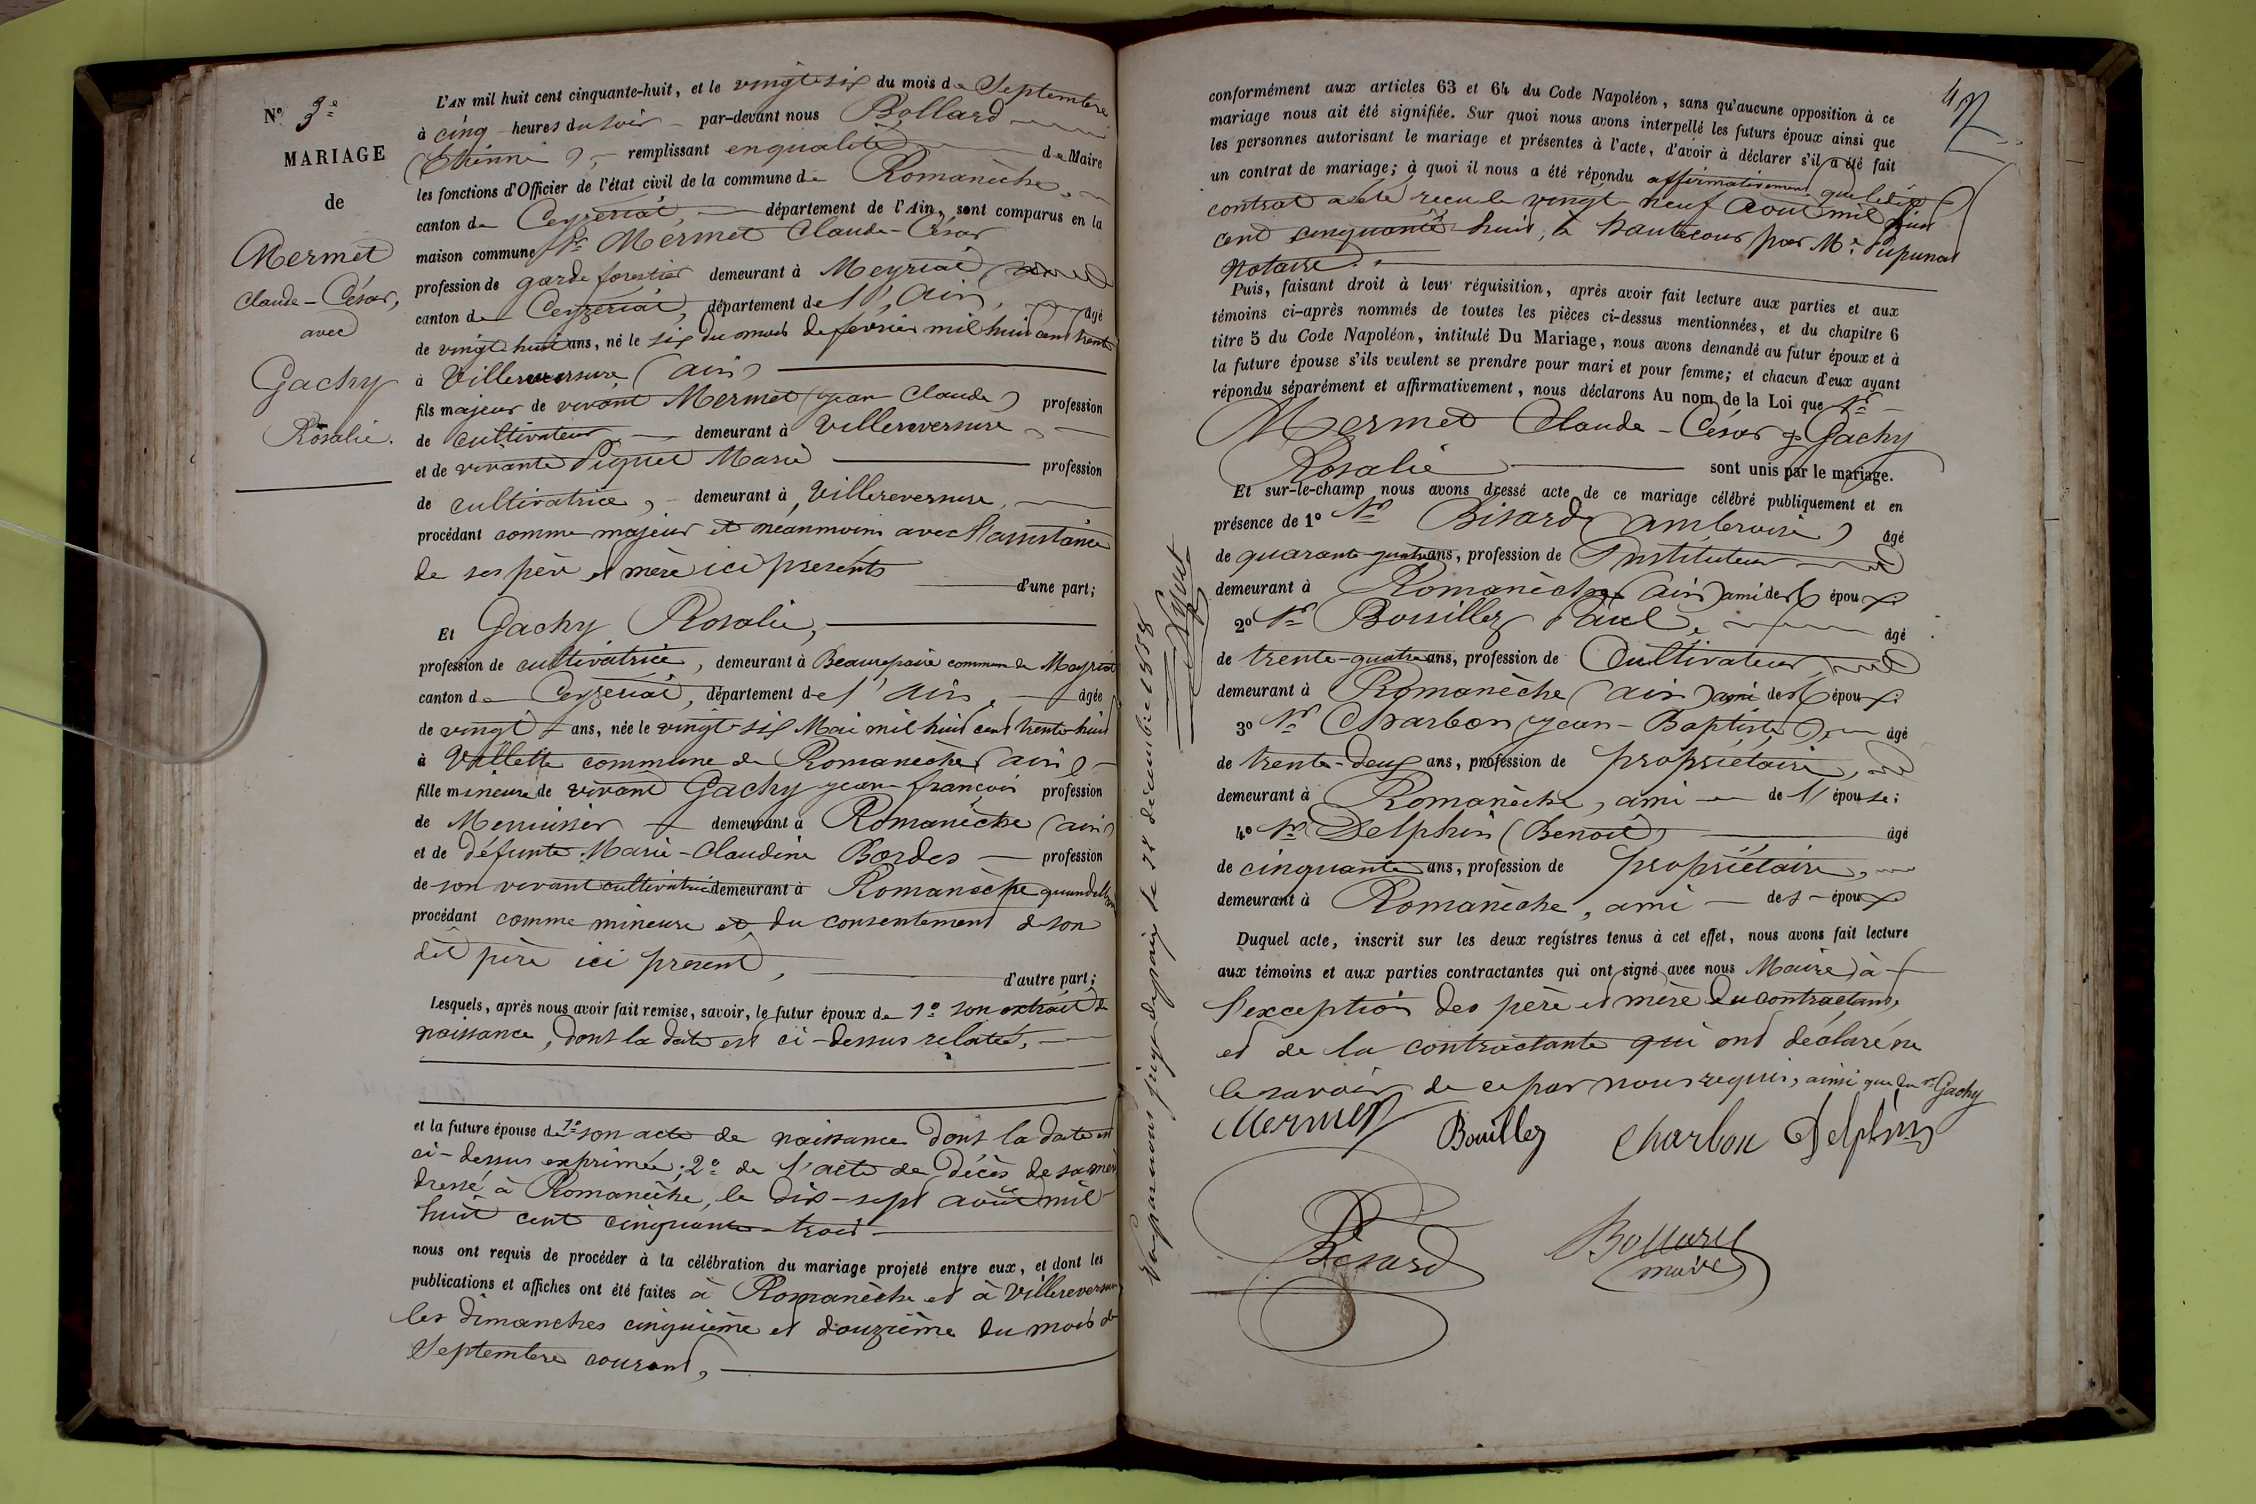 N° 3e
MARIAGE
de
Mermet
Claude-César,
avec
Gachy
Rosalie.
L'AN mil huit cent cinquante-huit, et le vingt-six du mois de Septembre
à cinq heures du soir par-devant nous Bollard
(Etienne), remplissant en qualité de Maire
les fonctions d'Officier de l'état civil de la commune de Romanèche,
canton de Ceyzériat, département de l'Ain, sont comparus en la
maison commune Sr. Mermet Claude-César
profession de garde forestier demeurant à Meyriat
canton de Ceyzériat, département de l'Ain, âgé
de vingt huit ans, né le six du mois de février mil huit cent trente
à Villereversure (ain)
fils majeur de vivant Mermet (jean Claude) profession
de cultivateur demeurant à Villereversure
et de vivante Piquet Marie profession
de cultivatrice, demeurant à Villereversure,
procédant comme majeur et néanmoins avec l'assistance
de ses père et mère ici présents d'une part;
Et Gachy Rosalie,
profession de cultivatrice, demeurant à Beaurepaire commune de Meyriat
canton de Ceyzériat, département de l'Ain, âgée
de vingt ans, née le vingt-six Mai mil huit cent trente-huit
à Villette commune de Romanèche (ain)
fille mineure de vivant Gachy jean-françois profession
de Menuisier demeurant à Romanèche (ain)
et de défunte Marie-Claudine Bordes profession
de son vivant cultivatrice demeurant à Romanèche quand elle
procédant comme mineure et du consentement de son
dit père ici présent, d'autre part;
Lesquels, après nous avoir fait remise, savoir, le futur époux de 1° son extrait de
naissance, dont la date est ci-dessus relatée,
et la future épouse de 1° son acte de naissance dont la date est
ci-dessus exprimée; 2° de l'acte de décès de sa mère
dressé à Romanèche, le dix-sept août mil
huit cent cinquante-trois
nous ont requis de procéder à la célébration du mariage projeté entre eux, et dont les
publications et affiches ont été faites à Romanèche et à Villereversure
les dimanches cinquième et douzième du mois de
Septembre courant,
47
conformément aux articles 63 et 64 du Code Napoléon, sans qu'aucune opposition à ce
mariage nous ait été signifiée. Sur quoi nous avons interpellé les futurs époux ainsi que
les personnes autorisant le mariage et présentes à l'acte, d'avoir à déclarer s'il a été fait
un contrat de mariage; à quoi il nous a été répondu affirmativement que ledit
contrat a été reçu le vingt-neuf Août mil huit
cent cinquante-huit, à hautecour par Me. Pupunat
Notaire.
Puis, faisant droit à leur réquisition, après avoir fait lecture aux parties et aux
témoins ci-après nommés de toutes les pièces ci-dessus mentionnées, et du chapitre 6
titre 5 du Code Napoléon, intitulé Du Mariage, nous avons demandé au futur époux et à
la future épouse s'ils veulent se prendre pour mari et pour femme; et chacun d'eux ayant
répondu séparément et affirmativement, nous déclarons Au nom de la Loi que Sr
Mermet Claude-César & Gachy
Rosalie sont unis par le mariage.
Et sur-le-champ nous avons dressé acte de ce mariage célébré publiquement et en
présence de 1° Sr Bisard (ambroise) âgé
de quarante-quatre ans, profession de Instituteur
demeurant à Romanèche (ain) ami des époux.
2° Sr Bouillez Paul, âgé
de trente-quatre ans, profession de Cultivateur,
demeurant à Romanèche (ain) ami des époux.
3° Sr Charbon (jean-Baptiste), âgé
de trente-deux ans, profession de propriétaire,
demeurant à Romanèche, ami de l'épouse;
4° Sr Delphin (Benoit) âgé
de cinquante ans, profession de propriétaire,
demeurant à Romanèche, ami des époux
Duquel acte, inscrit sur les deux registres tenus à cet effet, nous avons fait lecture
aux témoins et aux parties contractantes qui ont signé avec nous Maire, à
l'exception des père et mère du contractant,
et de la contractante qui ont déclaré ne
le savoir de ce par nous requis, ainsi que du sr Gachy
Mermet Bouillez Charbon Delphin
Bisard Bollard
maire
Vu par nous juge de paix le 28 décembre 1858